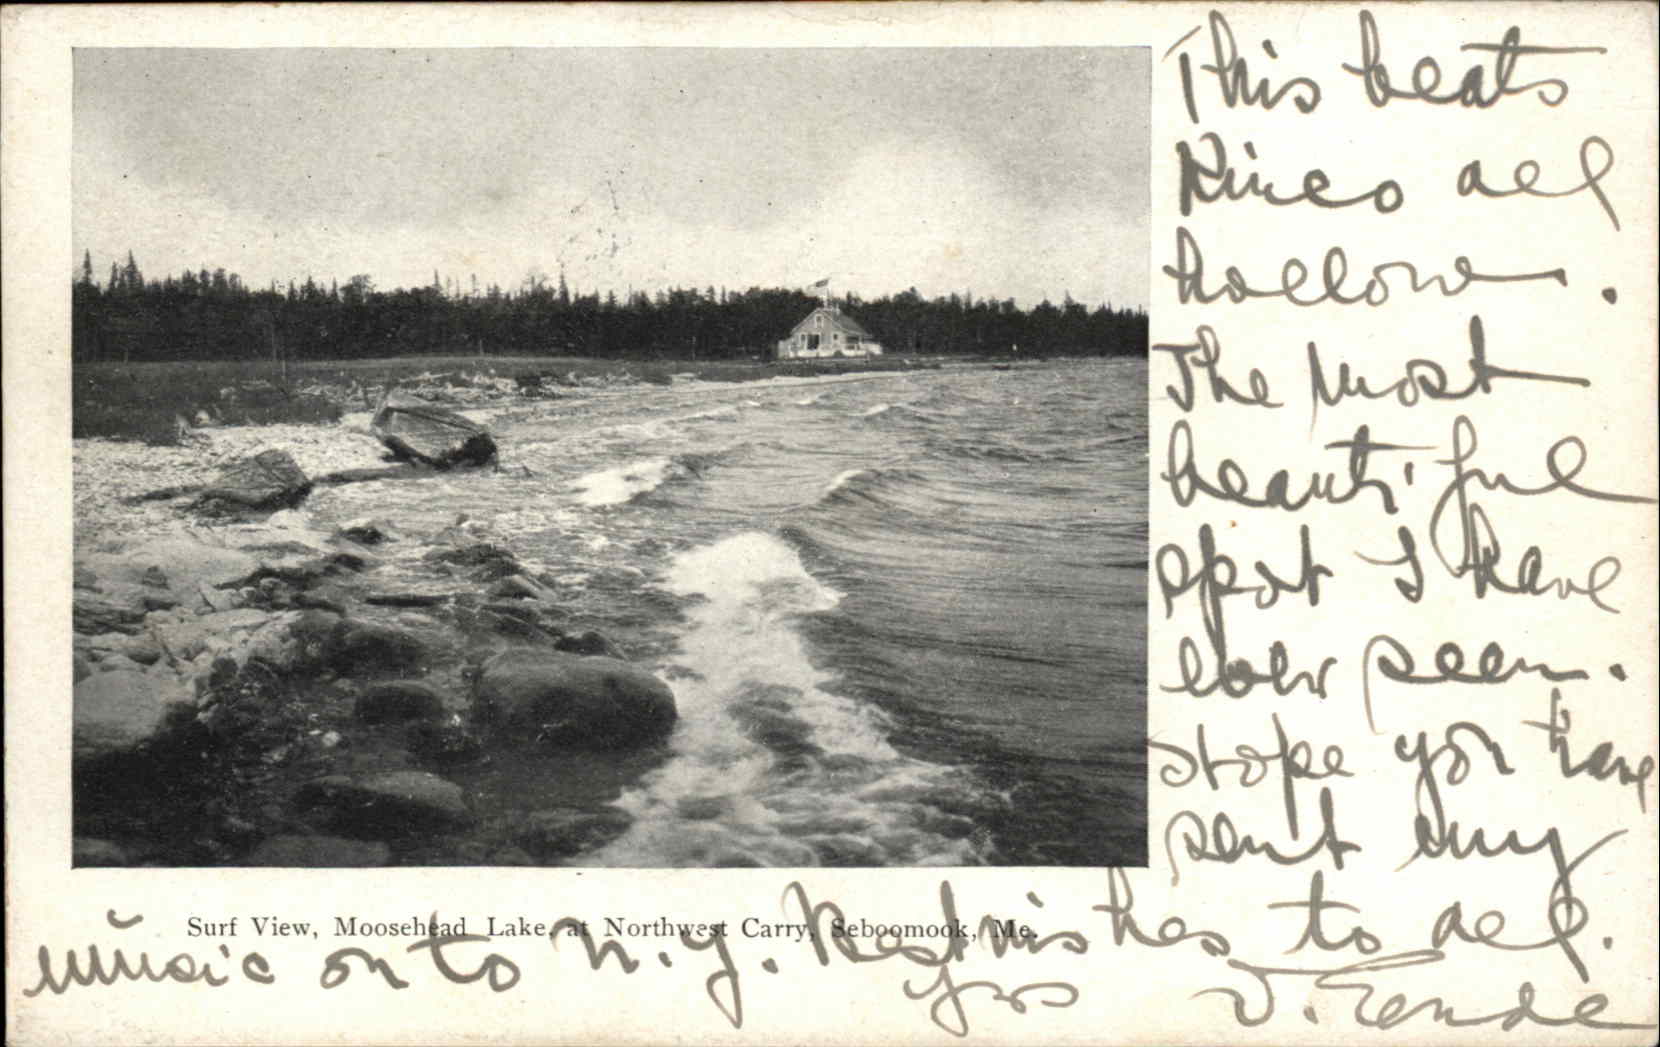 This beats
Kineo all
hollow.
The most
beautiful
spot I have
ever seen.
Hope you have
sent my
music on to N.Y. Best wishes to all.
Yrs
Surf View, Moosehead Lake, at Northwest Carry, Seboomook, Me.